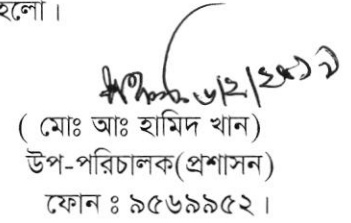 হলো।
৬/২/২০১৯
( মোঃ আঃ হামিদ খান)
উপ-পরিচালক(প্রশাসন)
ফোন ঃ ৯৫৬৯৯৫২।